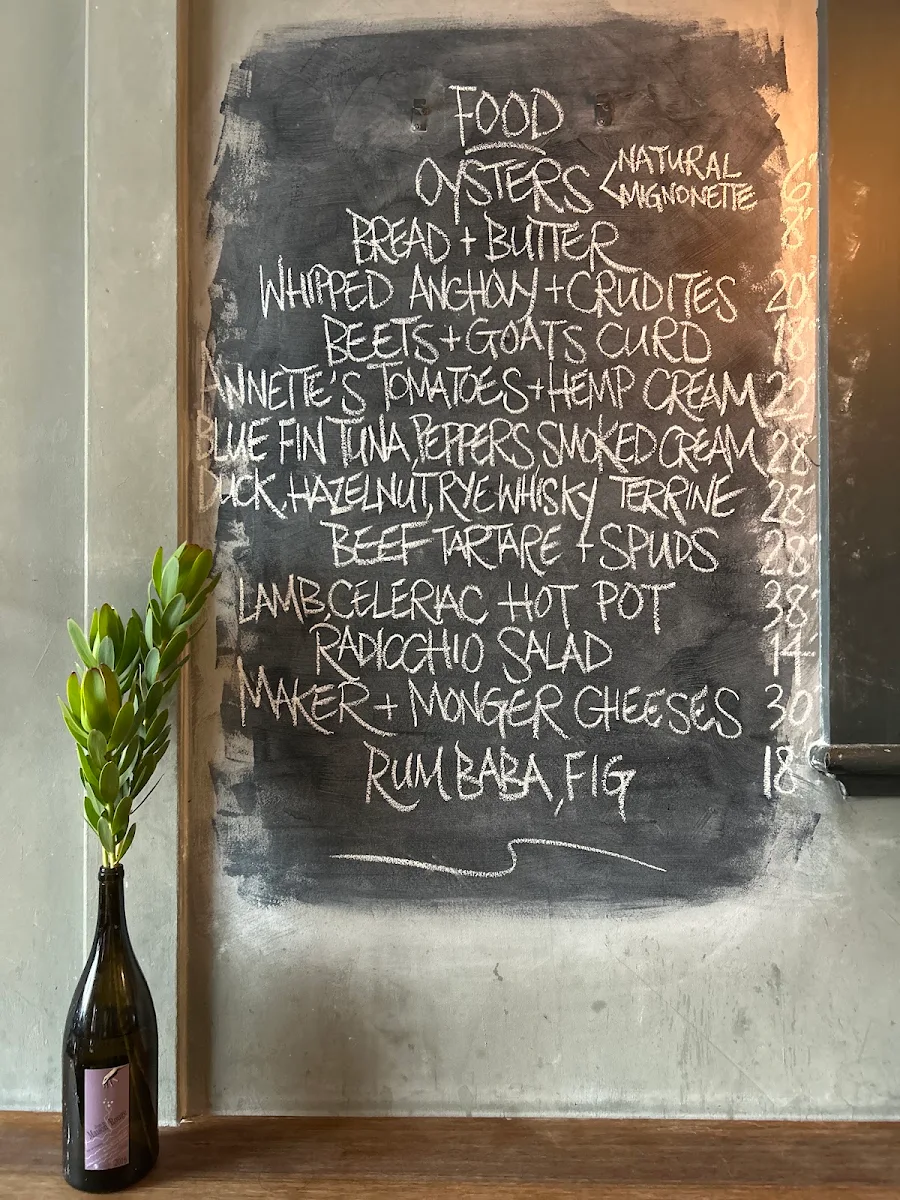 FOOD
OYSTERS < NATURAL 6'
MIGNONETTE
BREAD + BUTTER 8'
WHIPPED ANCHOVY + CRUDITES 20'
BEETS + GOATS CURD 18'
ANNETTE'S TOMATOES + HEMP CREAM 22'
BLUE FIN TUNA, PEPPERS SMOKED CREAM 28'
DUCK, HAZELNUT, RYE WHISKY TERRINE 28'
BEEF TARTARE + SPUDS 28'
LAMB, CELERIAC HOT POT 38'
RADICCHIO SALAD 14'
MAKER + MONGER CHEESES 30'
RUM BABA, FIG 18'